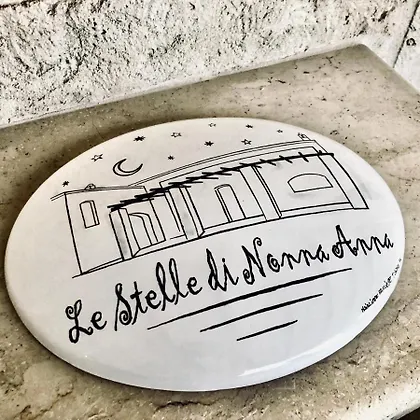 Le Stelle di Nonna Anna